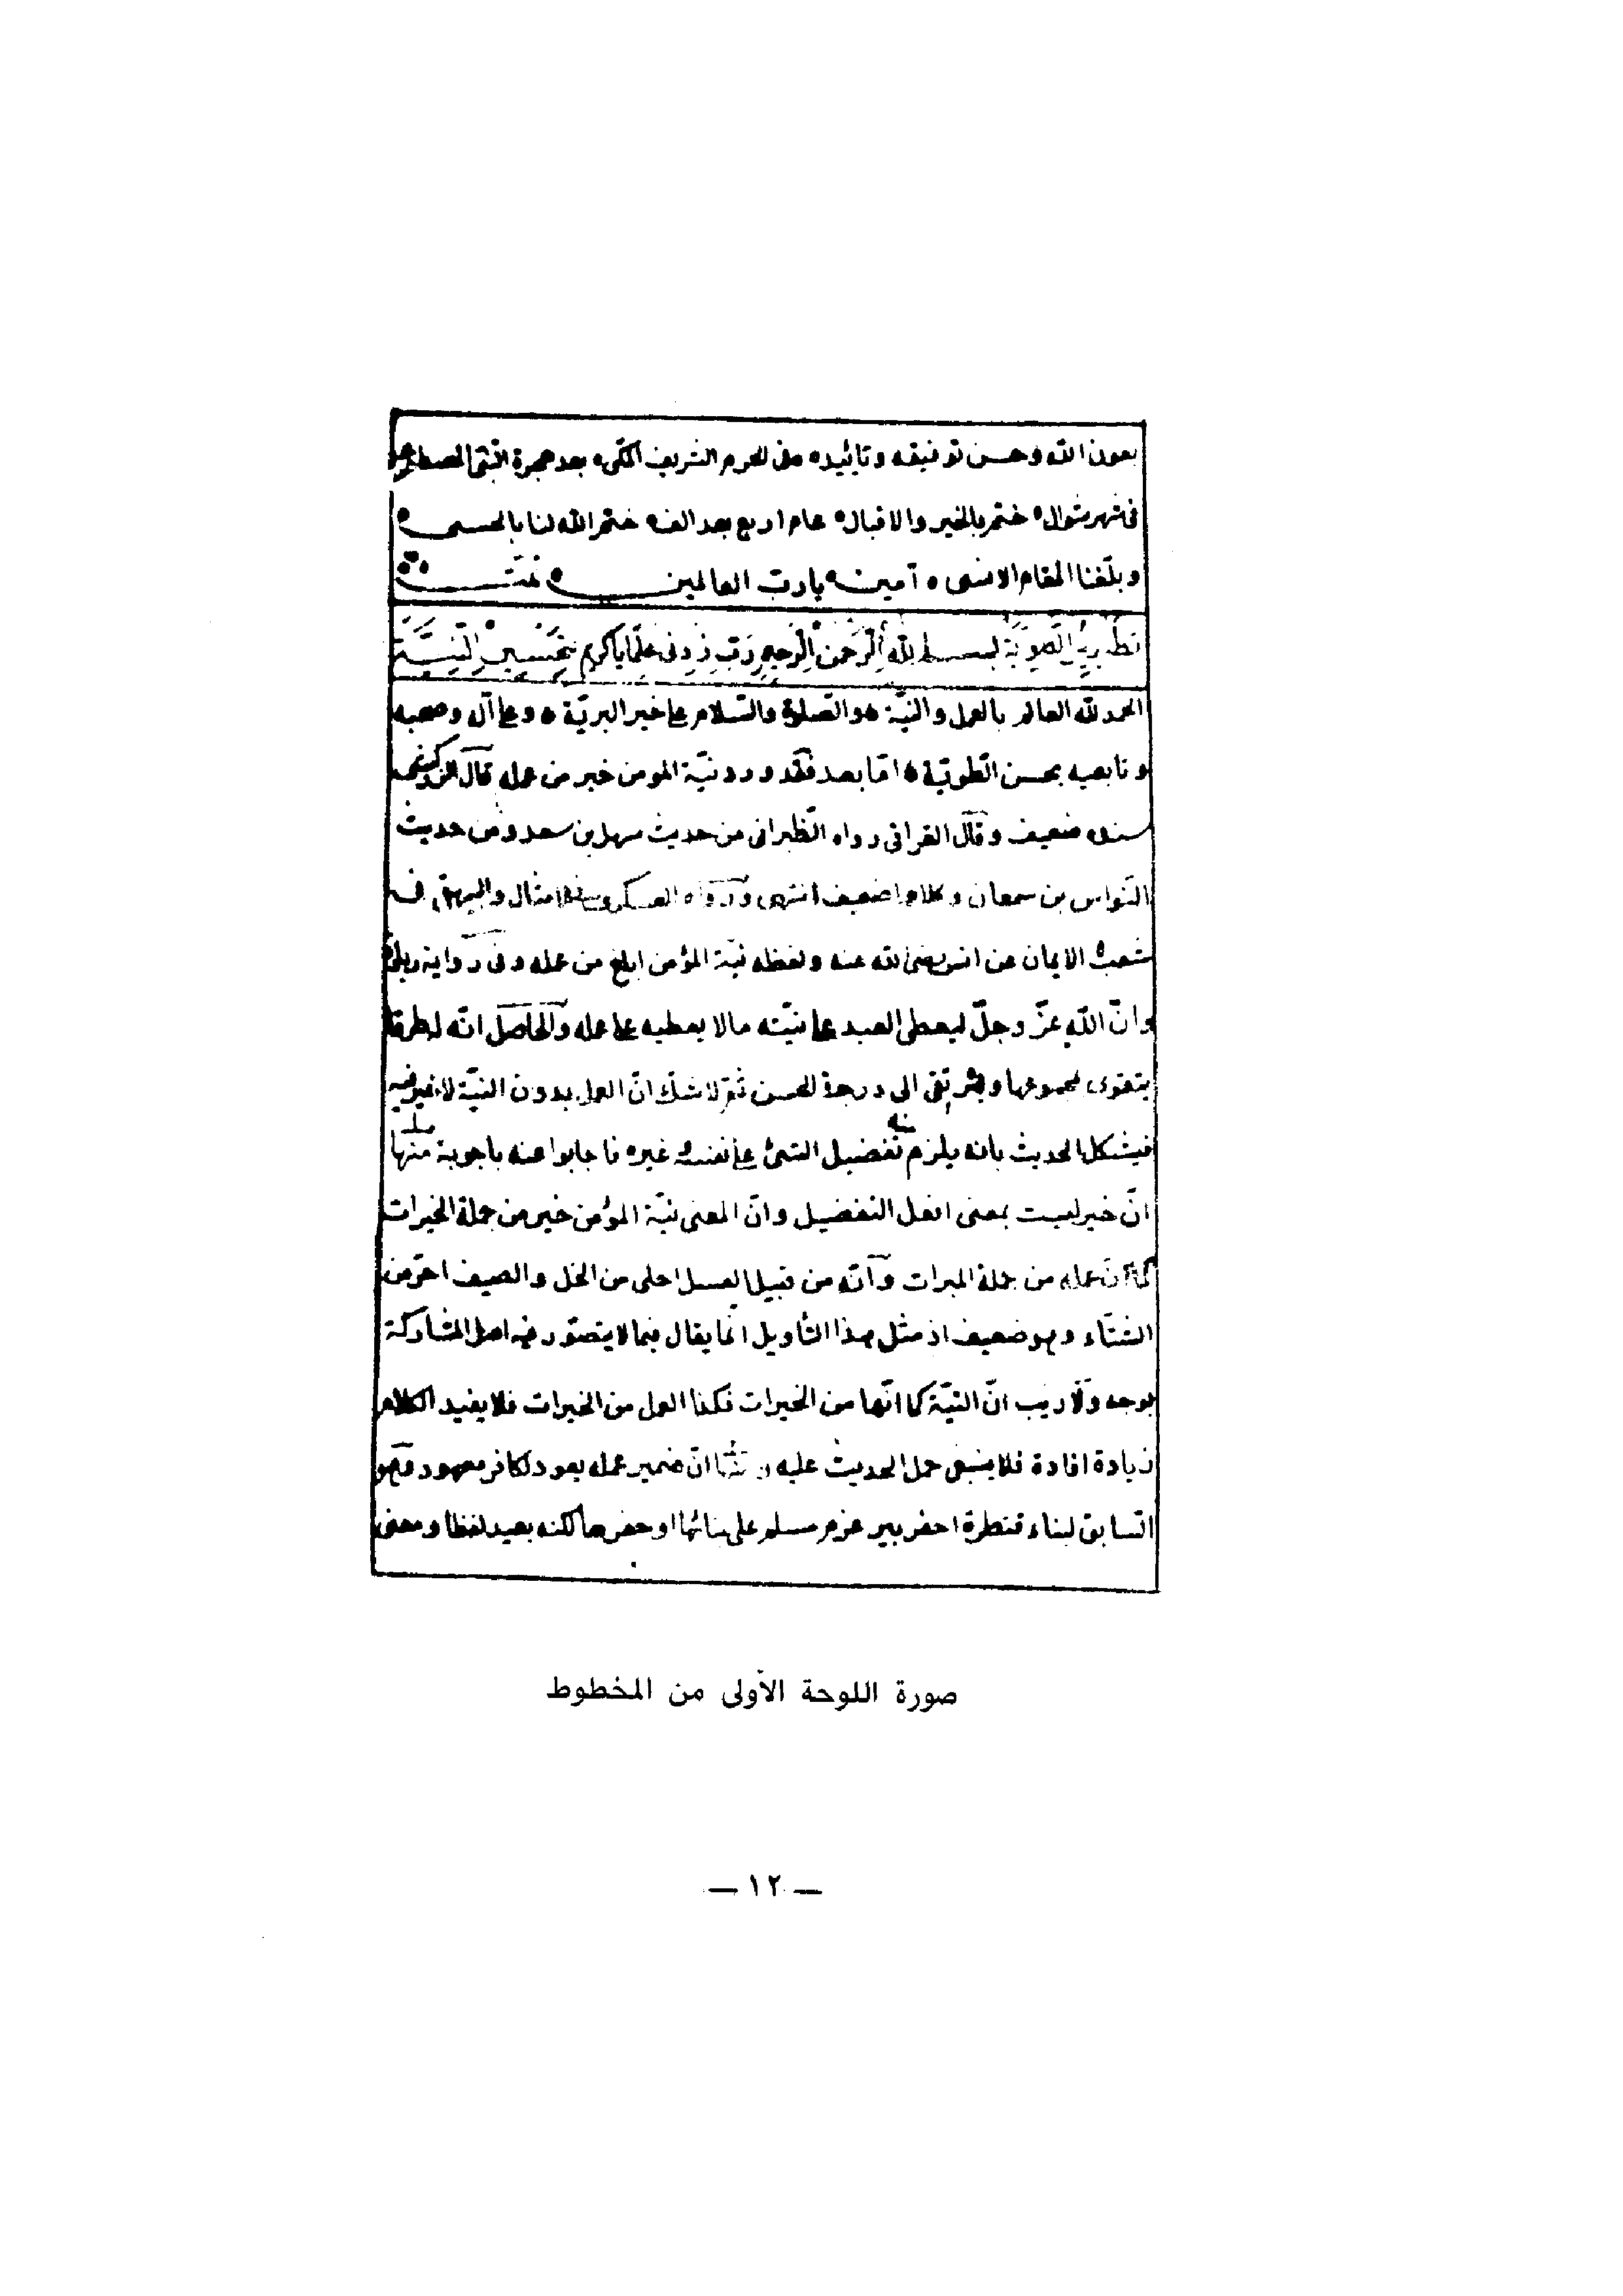 بعون الله وحسن توفيقه وتائيده فى الحرم الشريف المكى بعد هجرة النبى المصطفى
فى شهر شوال ختم بالخير والاقبال عام اربع بعد الف ختم الله لنا بالحسنى
وبلّغنا المقام الاسنى آمين يا ربّ العالمين تمّت
تطهير الطوية بسم الله الرَّحمن الرَّحيم رَبّ زدنى علمًا يا كريم بتحسين النيَّة
الحمد لله العالم بالعمل والنيّة والصّلوة والسّلام على خير البريّة وعلى آله وصحبه
وتابعيه بحسن الطويّة امّا بعد فقد ورد نيّة المومن خير من عمله قال الزركشى
سنده ضعيف وقال العراقى رواه الطّبرانى من حديث سهل بن سعد ومن حديث
النّواس بن سمعان وكلاهما ضعيف انتهى ورواه العسكرى فى الامثال والبيهقى فى
شعب الايمان عن انس رضى الله عنه ولفظه نيّة المؤمن ابلغ من عمله وفى رواية زيادة
وانّ الله عزّ وجلّ ليعطى العبد على نيّته مالا يعطيه على عمله والحاصل انّه له طرق
يتقوى بمجموعها ويرتقى الى درجة الحسن ثم لا شك انّ العمل بدون النيّة لا خير فيه
فيشكل الحديث بانه يلزم منه تفضيل الشئ على نفسه غيره فاجابوا عنه باجوبة منها
انّ خير ليست بمعنى افعل التفضيل وانّ المعنى نيّة المؤمن خير من جملة الخيرات
كما ان عمله من جملة المبرات وانّه من قبيل العسل احلى من الخل والصيف احرّ من
الشّتاء وهو ضعيف اذ مثل هذا التأويل انّما يقال فيما لا يتصوّر فيه اصل المشاركة
بوجه ولا ريب انّ النيّة كما انّها من الخيرات فكذا العمل من الخيرات فلا يفيد الكلام
زيادة افادة فلا ينبغى حمل الحديث عليه انّ ضمير عمله يعود لكافر معهود وهو
السابق لبناء قنطرة او حفر بير عزم مسلم على بنائها او حفرها لكنه بعيد لفظا ومعنى
صورة اللوحة الأولى من المخطوط
— ١٢ —